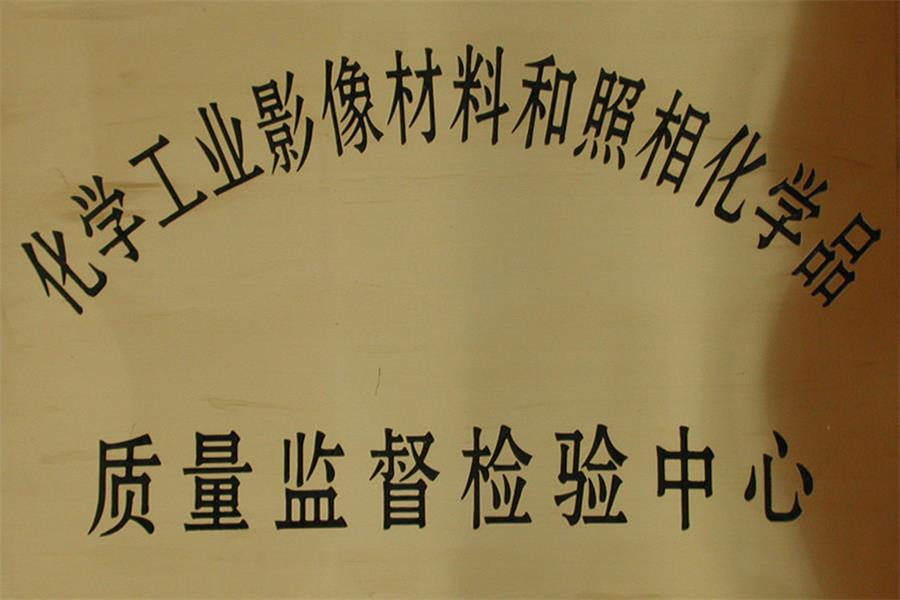 化学工业影像材料和照相化学品
质量监督检验中心